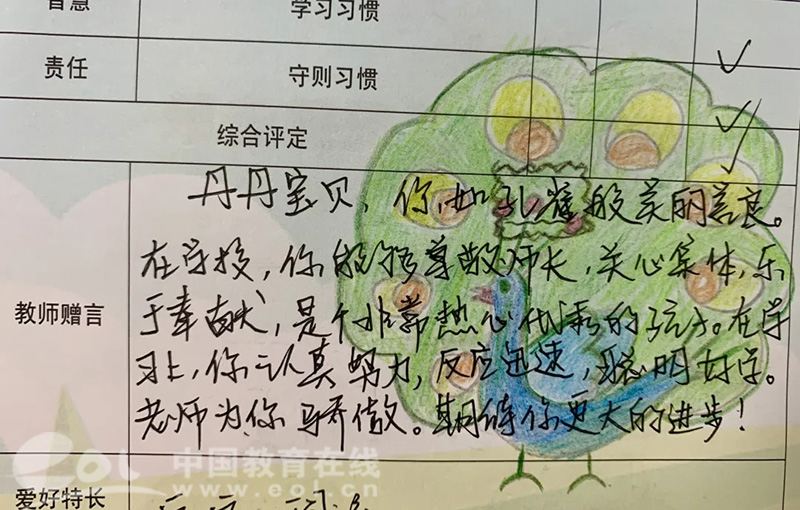 智慧 学习习惯
责任 守则习惯
综合评定
教师赠言
丹丹宝贝，你，如孔雀般美丽善良。
在学校，你能够尊敬师长，关心集体，乐
于奉献，是个非常热心优秀的孩子。在学
习上，你认真努力，反应迅速，聪明好学。
老师为你骄傲。期待你更大的进步！
爱好特长
eol 中国教育在线
www.eol.cn